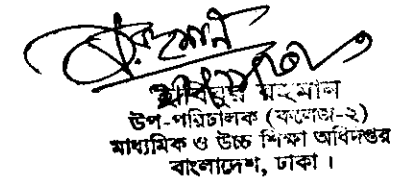 রহমান
উপ-পরিচালক (কলেজ-২)
মাধ্যমিক ও উচ্চ শিক্ষা অধিদপ্তর
বাংলাদেশ, ঢাকা।